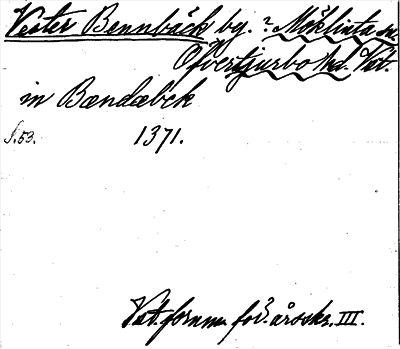 Vester Bennbäck bg. ? Möklinta sn.
Öfvertjurbo hd. Vst.
in Bændæbek
S. 53. 1371.
Vst. fornm. för. årsskr. III.